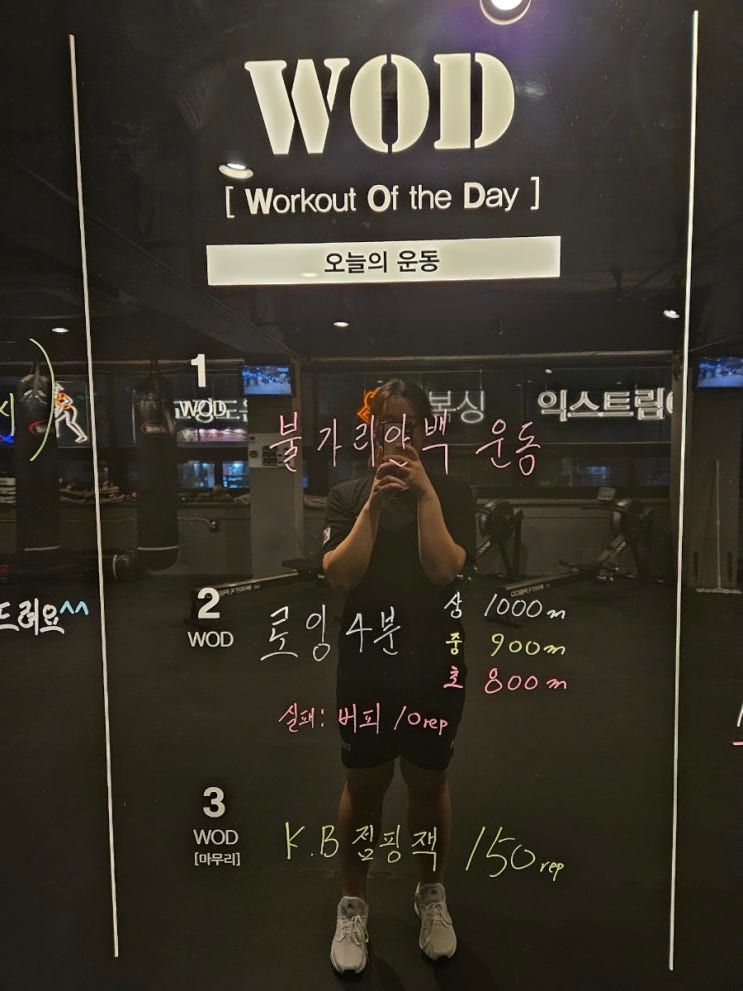 WOD
[ Workout Of the Day ]
오늘의 운동
1
WOD
불가리안백 운동
복싱
익스트림
2
WOD
로잉 4분
상 1000m
중 900m
초 800m
실패: 버피 10rep
드려요^^
3
WOD
[마무리]
K.B 점핑잭 150rep